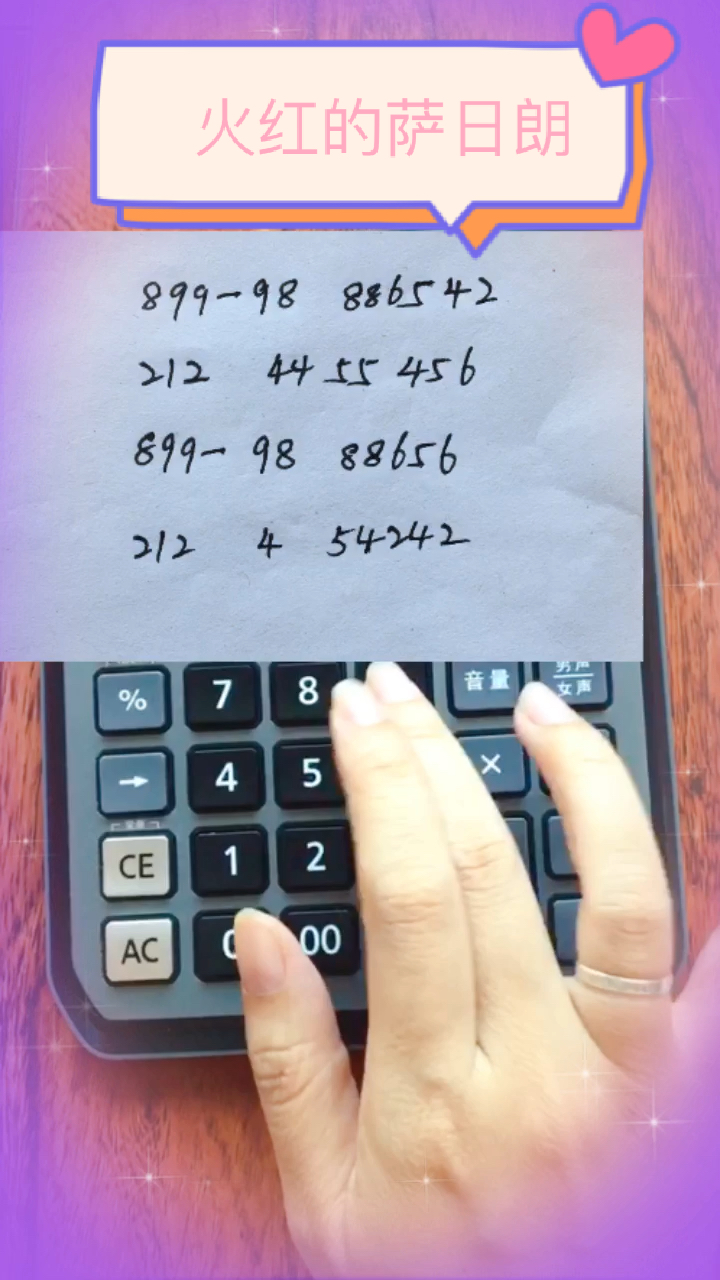 火红的萨日朗
899-98 886542
212 44 55 456
899- 98 88656
212 4 54242
% 7 8 音量 男声
女声
→ 4 5 ×
CE 1 2
AC 0 00